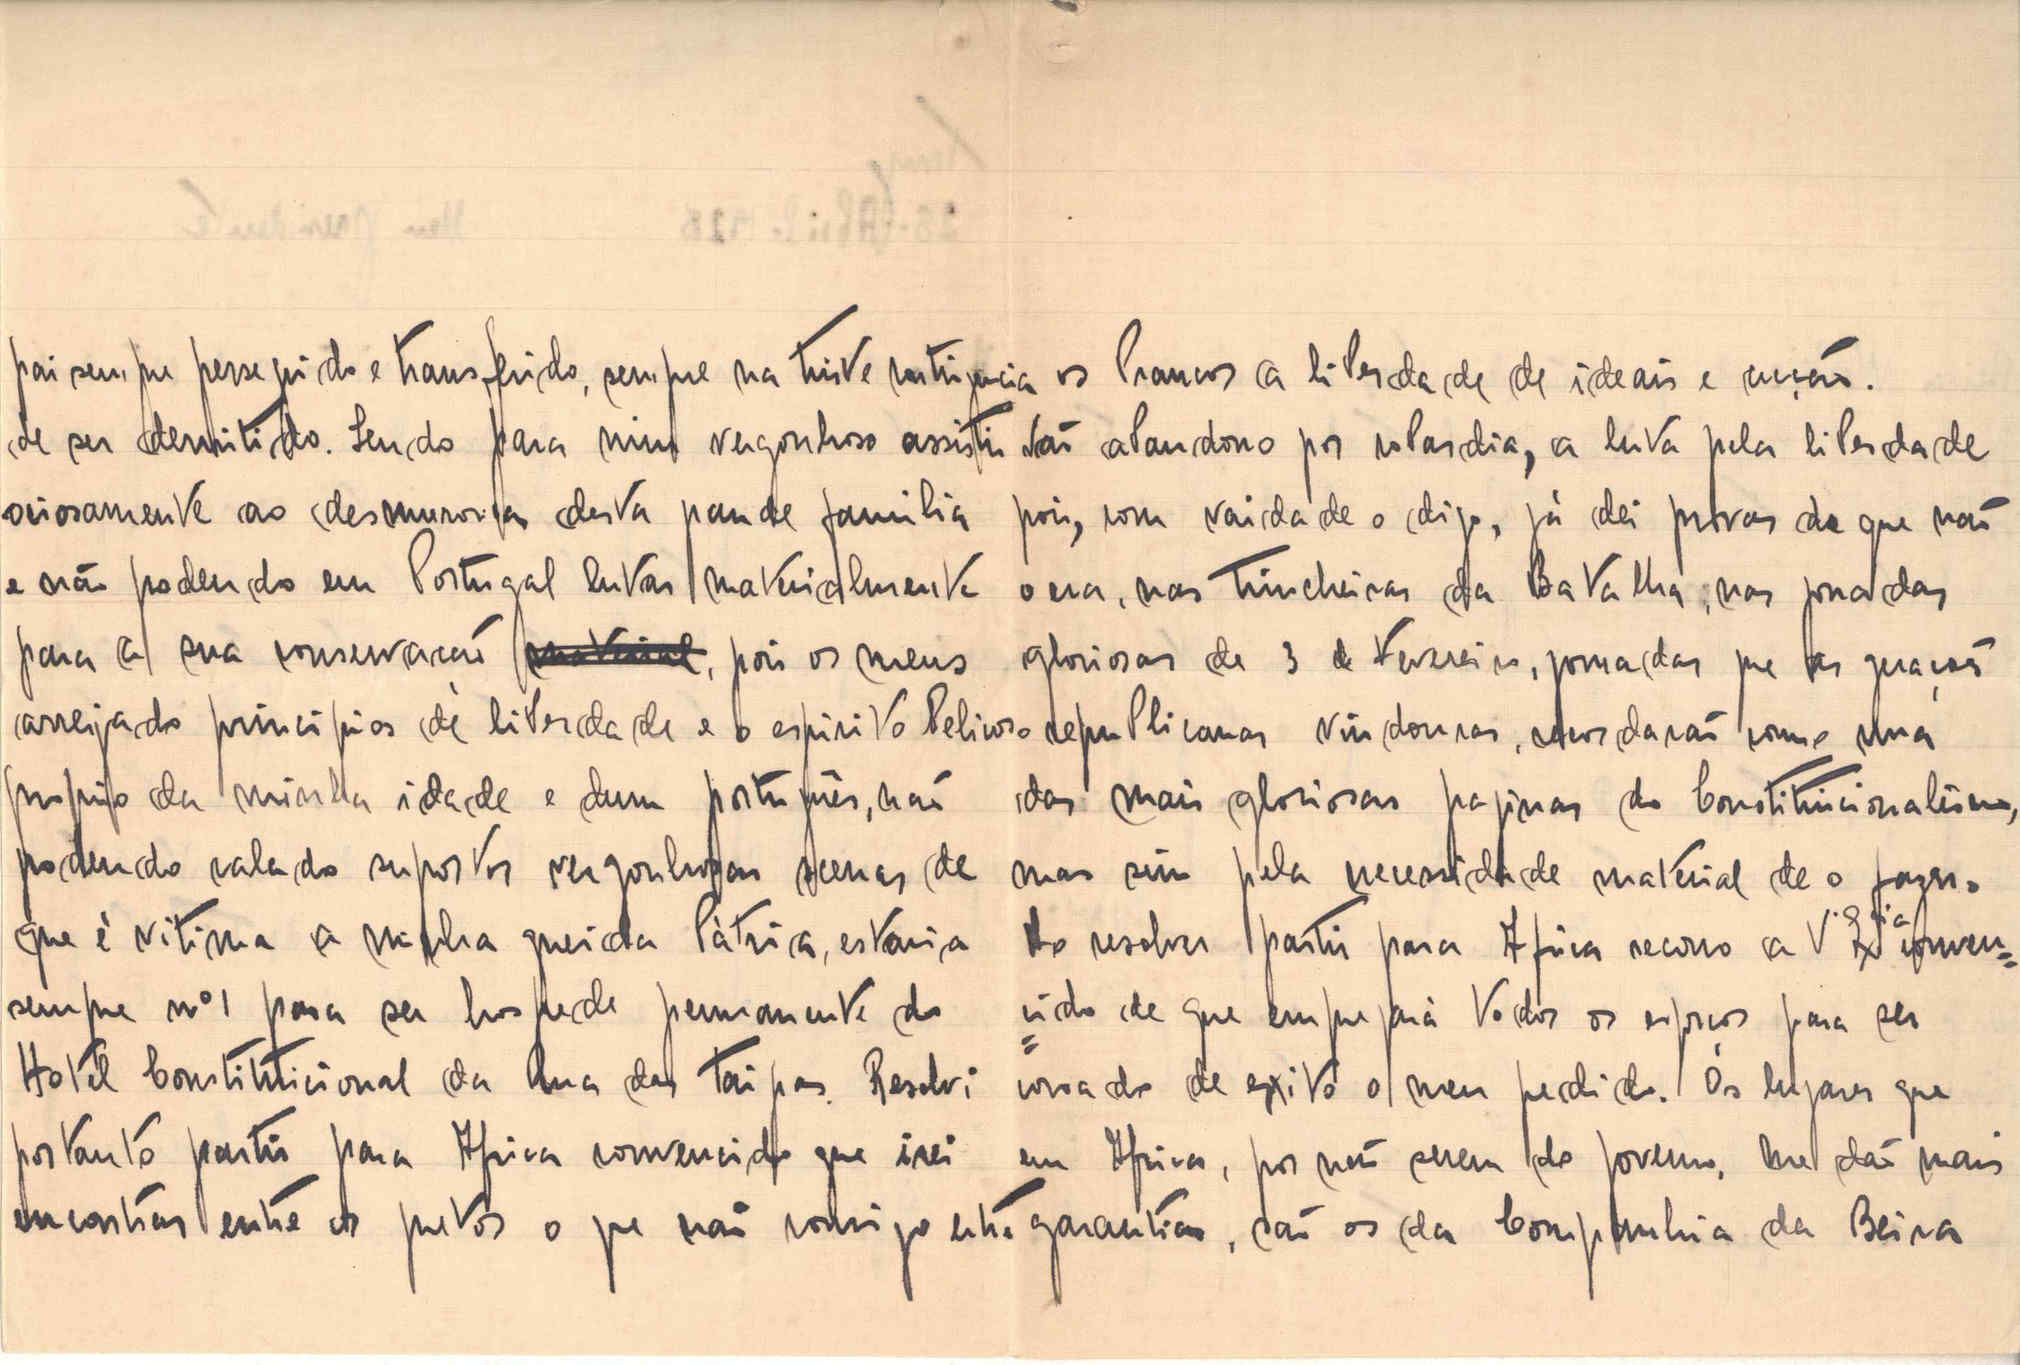 pai sempre perseguido e transferido, sempre na triste contingencia
de ser demitido. Sendo para mim vergonhoso assistir
ociosamente ao desmuronar desta grande familia
e não podendo em Portugal lutar materialmente
para a sua conservação material, pois os meus
arreigado principios de liberdade e o espirito belicoso
proprio da minha idade e dum português, não
podendo calado suportar vergonhosas scenas de
que é vitima a minha querida Pátria, estaria
sempre nº1 para ser hospede permanente do
Hotel Constitucional da Rua das Taipas. Resolvi
portanto partir para Africa convencido que irei
encontrar entre os pretos o que não consigo entre
os brancos a liberdade de ideais e acção.
Não abandono por cobardia, a luta pela liberdade
pois, com vaidade o digo, já dei provas de que não
o era, nas trincheiras da Batalha, nas jornadas
gloriosas de 3 de Fevereiro, jornadas que as gerações
republicanas vindouras, recordarão como uma
das mais gloriosas paginas do Constitucionalismo,
mas sim pela necessidade material de o fazer.
Ao resolver partir para Africa recorro a V. Exia conven=
=cido de que empregará todos os esforços para ser
coroado de exito o meu pedido. Os lugares que
em Africa, por não serem do governo, me dão mais
garantias, são os da Companhia da Beira